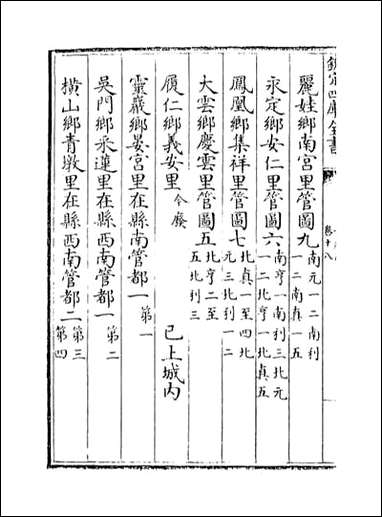 欽定四庫全書
卷十八
麗娃鄉南宮里管圖九南元一二南利
一二南真一五
永定鄉安仁里管圖六南亨一南利三北元
一二北亨一北真五
鳳凰鄉集祥里管圖七北真一至四北
元三北利一二
大雲鄉慶雲里管圖五北亨二至
五北利三
履仁鄉義安里今廢
已上城內
靈巖鄉晏宮里在縣南管都一第一
吳門鄉采蓮里在縣西南管都一第二
橫山鄉青墩里在縣西南管都二第三
第四